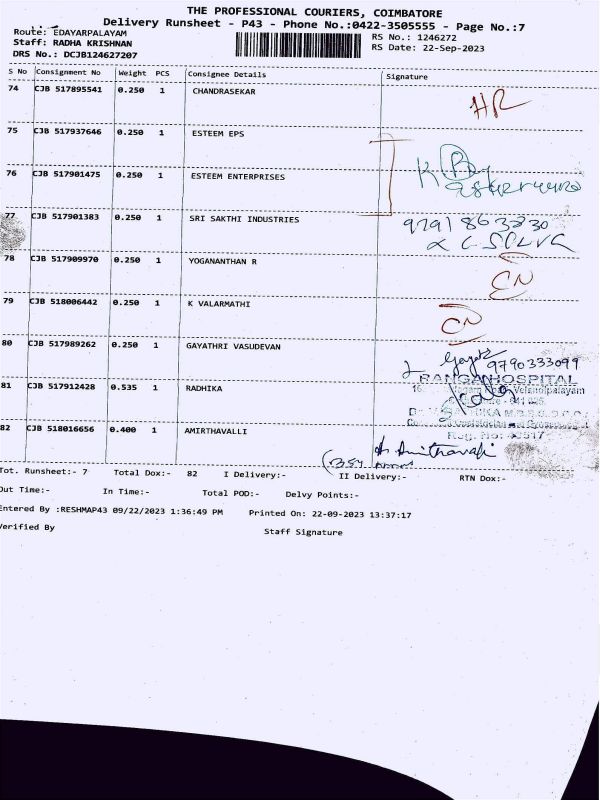 THE PROFESSIONAL COURIERS, COIMBATORE
Delivery Runsheet - P43 - Phone No.:0422-3505555 - Page No.:7
Route: EDAYARPALAYAM
Staff: RADHA KRISHNAN
DRS No.: DCJB124627207
RS No.: 1246272
RS Date: 22-Sep-2023
S No Consignment No Weight PCS Consignee Details Signature
74 CJB 517895541 0.250 1 CHANDRASEKAR
75 CJB 517937646 0.250 1 ESTEEM EPS
76 CJB 517901475 0.250 1 ESTEEM ENTERPRISES
77 CJB 517901383 0.250 1 SRI SAKTHI INDUSTRIES
78 CJB 517909970 0.250 1 YOGANANTHAN R
79 CJB 518006442 0.250 1 K VALARMATHI
80 CJB 517989262 0.250 1 GAYATHRI VASUDEVAN 9790333099
RANGA HOSPITAL
81 CJB 517912428 0.535 1 RADHIKA
82 CJB 518016656 0.400 1 AMIRTHAVALLI
Tot. Runsheet:- 7 Total Dox:- 82 I Delivery:- II Delivery:- RTN Dox:-
Out Time:- In Time:- Total POD:- Delvy Points:-
Entered By :RESHMAP43 09/22/2023 1:36:49 PM Printed On: 22-09-2023 13:37:17
Verified By Staff Signature